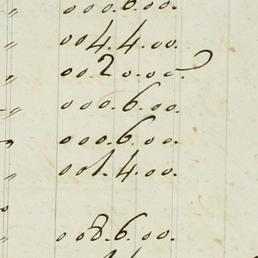 000.6.00.
〃 004.4.00.
〃 002.0.00.
〃 000.6.00.
000.6.00.
〃 001.4.00.
〃 008.6.00.